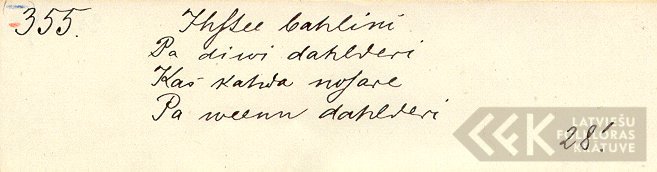 355.
Ihstee bahlini
Pa diwi dahlderi
Kas kahda nosare
Pa weenu dahlderi
28.
LATVIEŠU
FOLKLORAS
KRĀTUVE